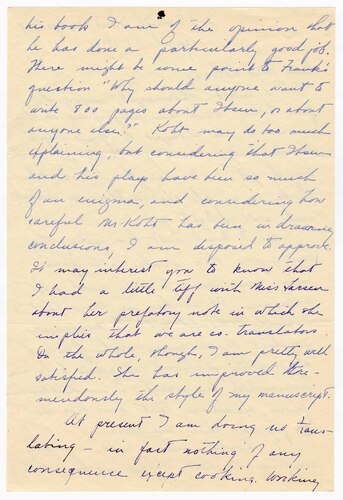 his book I am of the opinion that
he has done a particularly good job.
There might be some point to Frank's
question "Why should anyone want to
write 800 pages about Ibsen, or about
anyone else?" Koht may do too much
explaining, but considering that Ibsen
and his plays have been so much
of an enigma, and considering how
careful Mr Koht has been in drawing
conclusions, I am disposed to approve.
It may interest you to know that
I had a little tiff with Miss Larsen
about her prefatory note in which she
implies that we are co-translators.
On the whole, though, I am pretty well
satisfied. She has improved tre-
mendously the style of my manuscript.
At present I am doing no trans-
lating — in fact nothing of any
consequence except cooking. Working